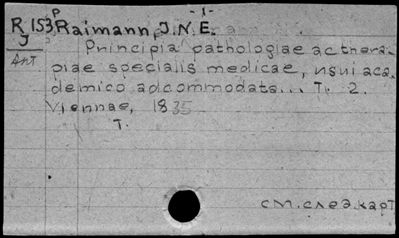 - 1 -
R 153 P Raimann, J.N.E.
J
Ant Principia pathologiae ac thera-
piae specialis medicae, usui aca-
demico adcommodata... T. 2.
Viennae, 1835
T.
см. след. карт